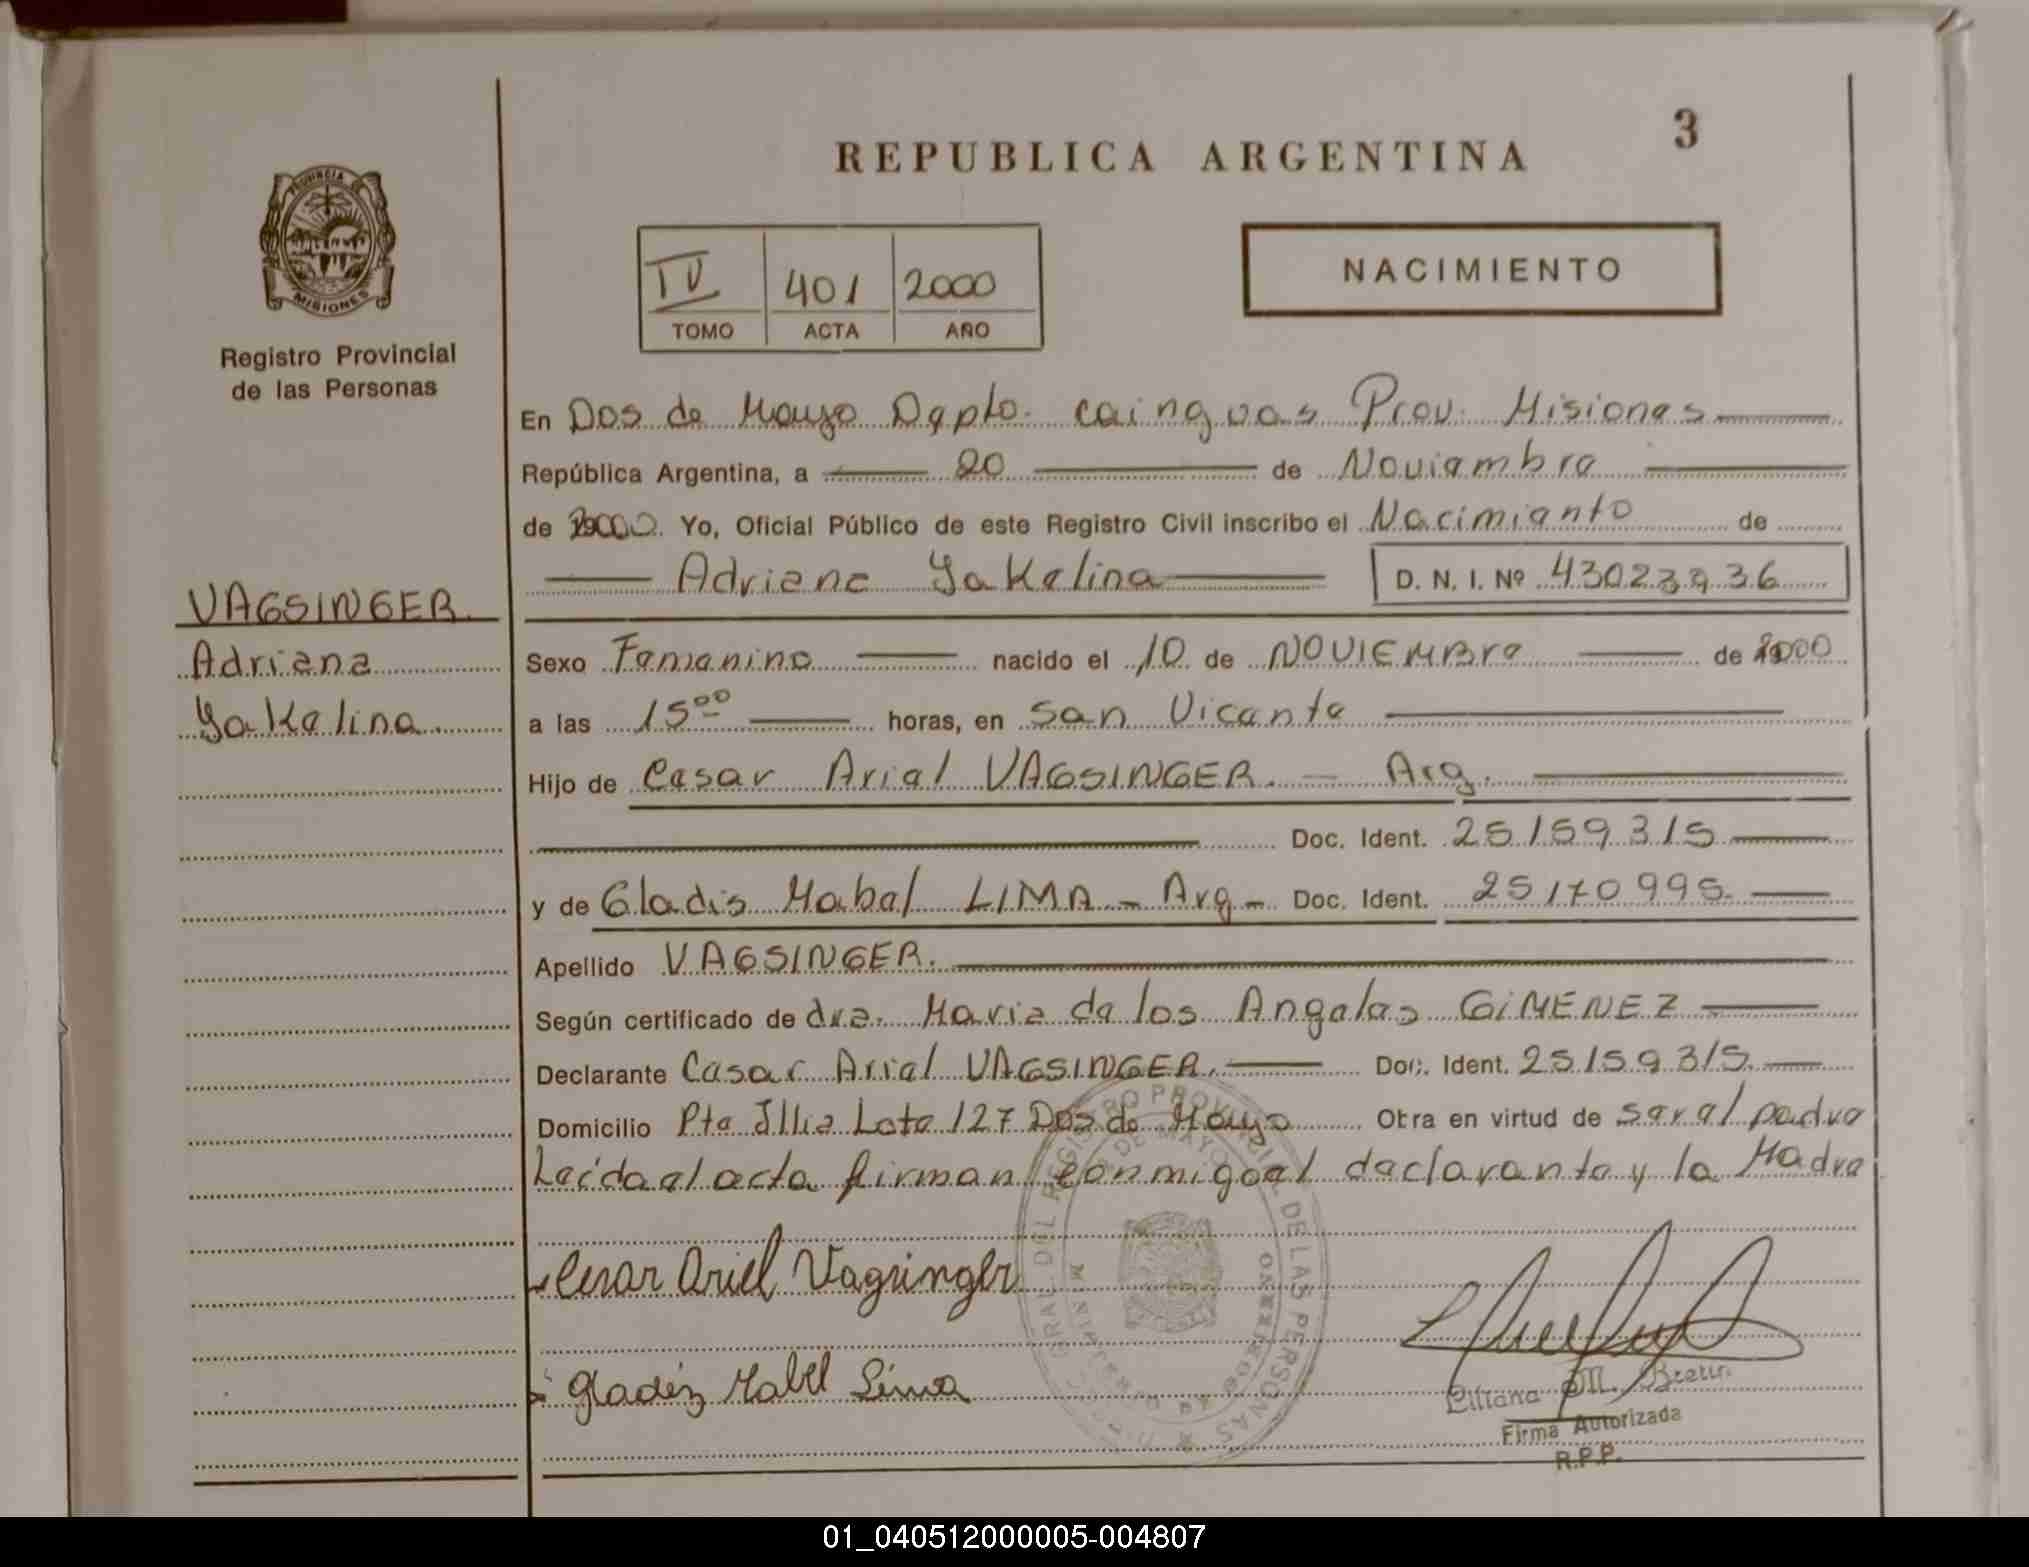 REPUBLICA ARGENTINA
3
PROVINCIA DE
MISIONES
Registro Provincial
de las Personas
IV 401 2000
TOMO ACTA AÑO
NACIMIENTO
En Dos de Mayo Dpto. cainguas Prov. Misiones
República Argentina, a 20 de Noviembre
de 2000 Yo, Oficial Público de este Registro Civil inscribo el Nacimiento de
Adriana Yakelina D. N. I. Nº 43023936
VAGSINGER.
Adriana
Yakelina.
Sexo Femenino nacido el 10 de NOVIEMBre de 2000
a las 15⁰⁰ horas, en San Vicente
Hijo de Cesar Ariel VAGSINGER. - Arg.
Doc. Ident. 25159315
y de Gladis Mabel LIMA - Arg - Doc. Ident. 25170995.
Apellido VAGSINGER.
Según certificado de dra. Maria de los Angeles GiMENEZ
Declarante Cesar Ariel VAGSINGER. Doc. Ident. 25159315.
Domicilio Pte Illia Lote 127 Dos de Mayo Obra en virtud de ser el padre
Leída el acta firman conmigo el declarante y la Madre
Cesar Ariel Vagsinger
Gladiz Mabel Lima
REGISTRO PROVINCIAL DE LAS PERSONAS
DOS DE MAYO
Liliana M.
Firma Autorizada
R.P.P.
01_040512000005-004807